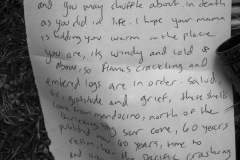 and you may shuffle about in death
as you did in life. I hope your mama
is holding you warm in the place
you are, its windy and cold up
above, so flames crackling and
embered logs are in order. Salud,
gratitude and grief, these shells
from Mendocino, north of the
scar come, 60 years
60 years, time to
and the Pacific crashing